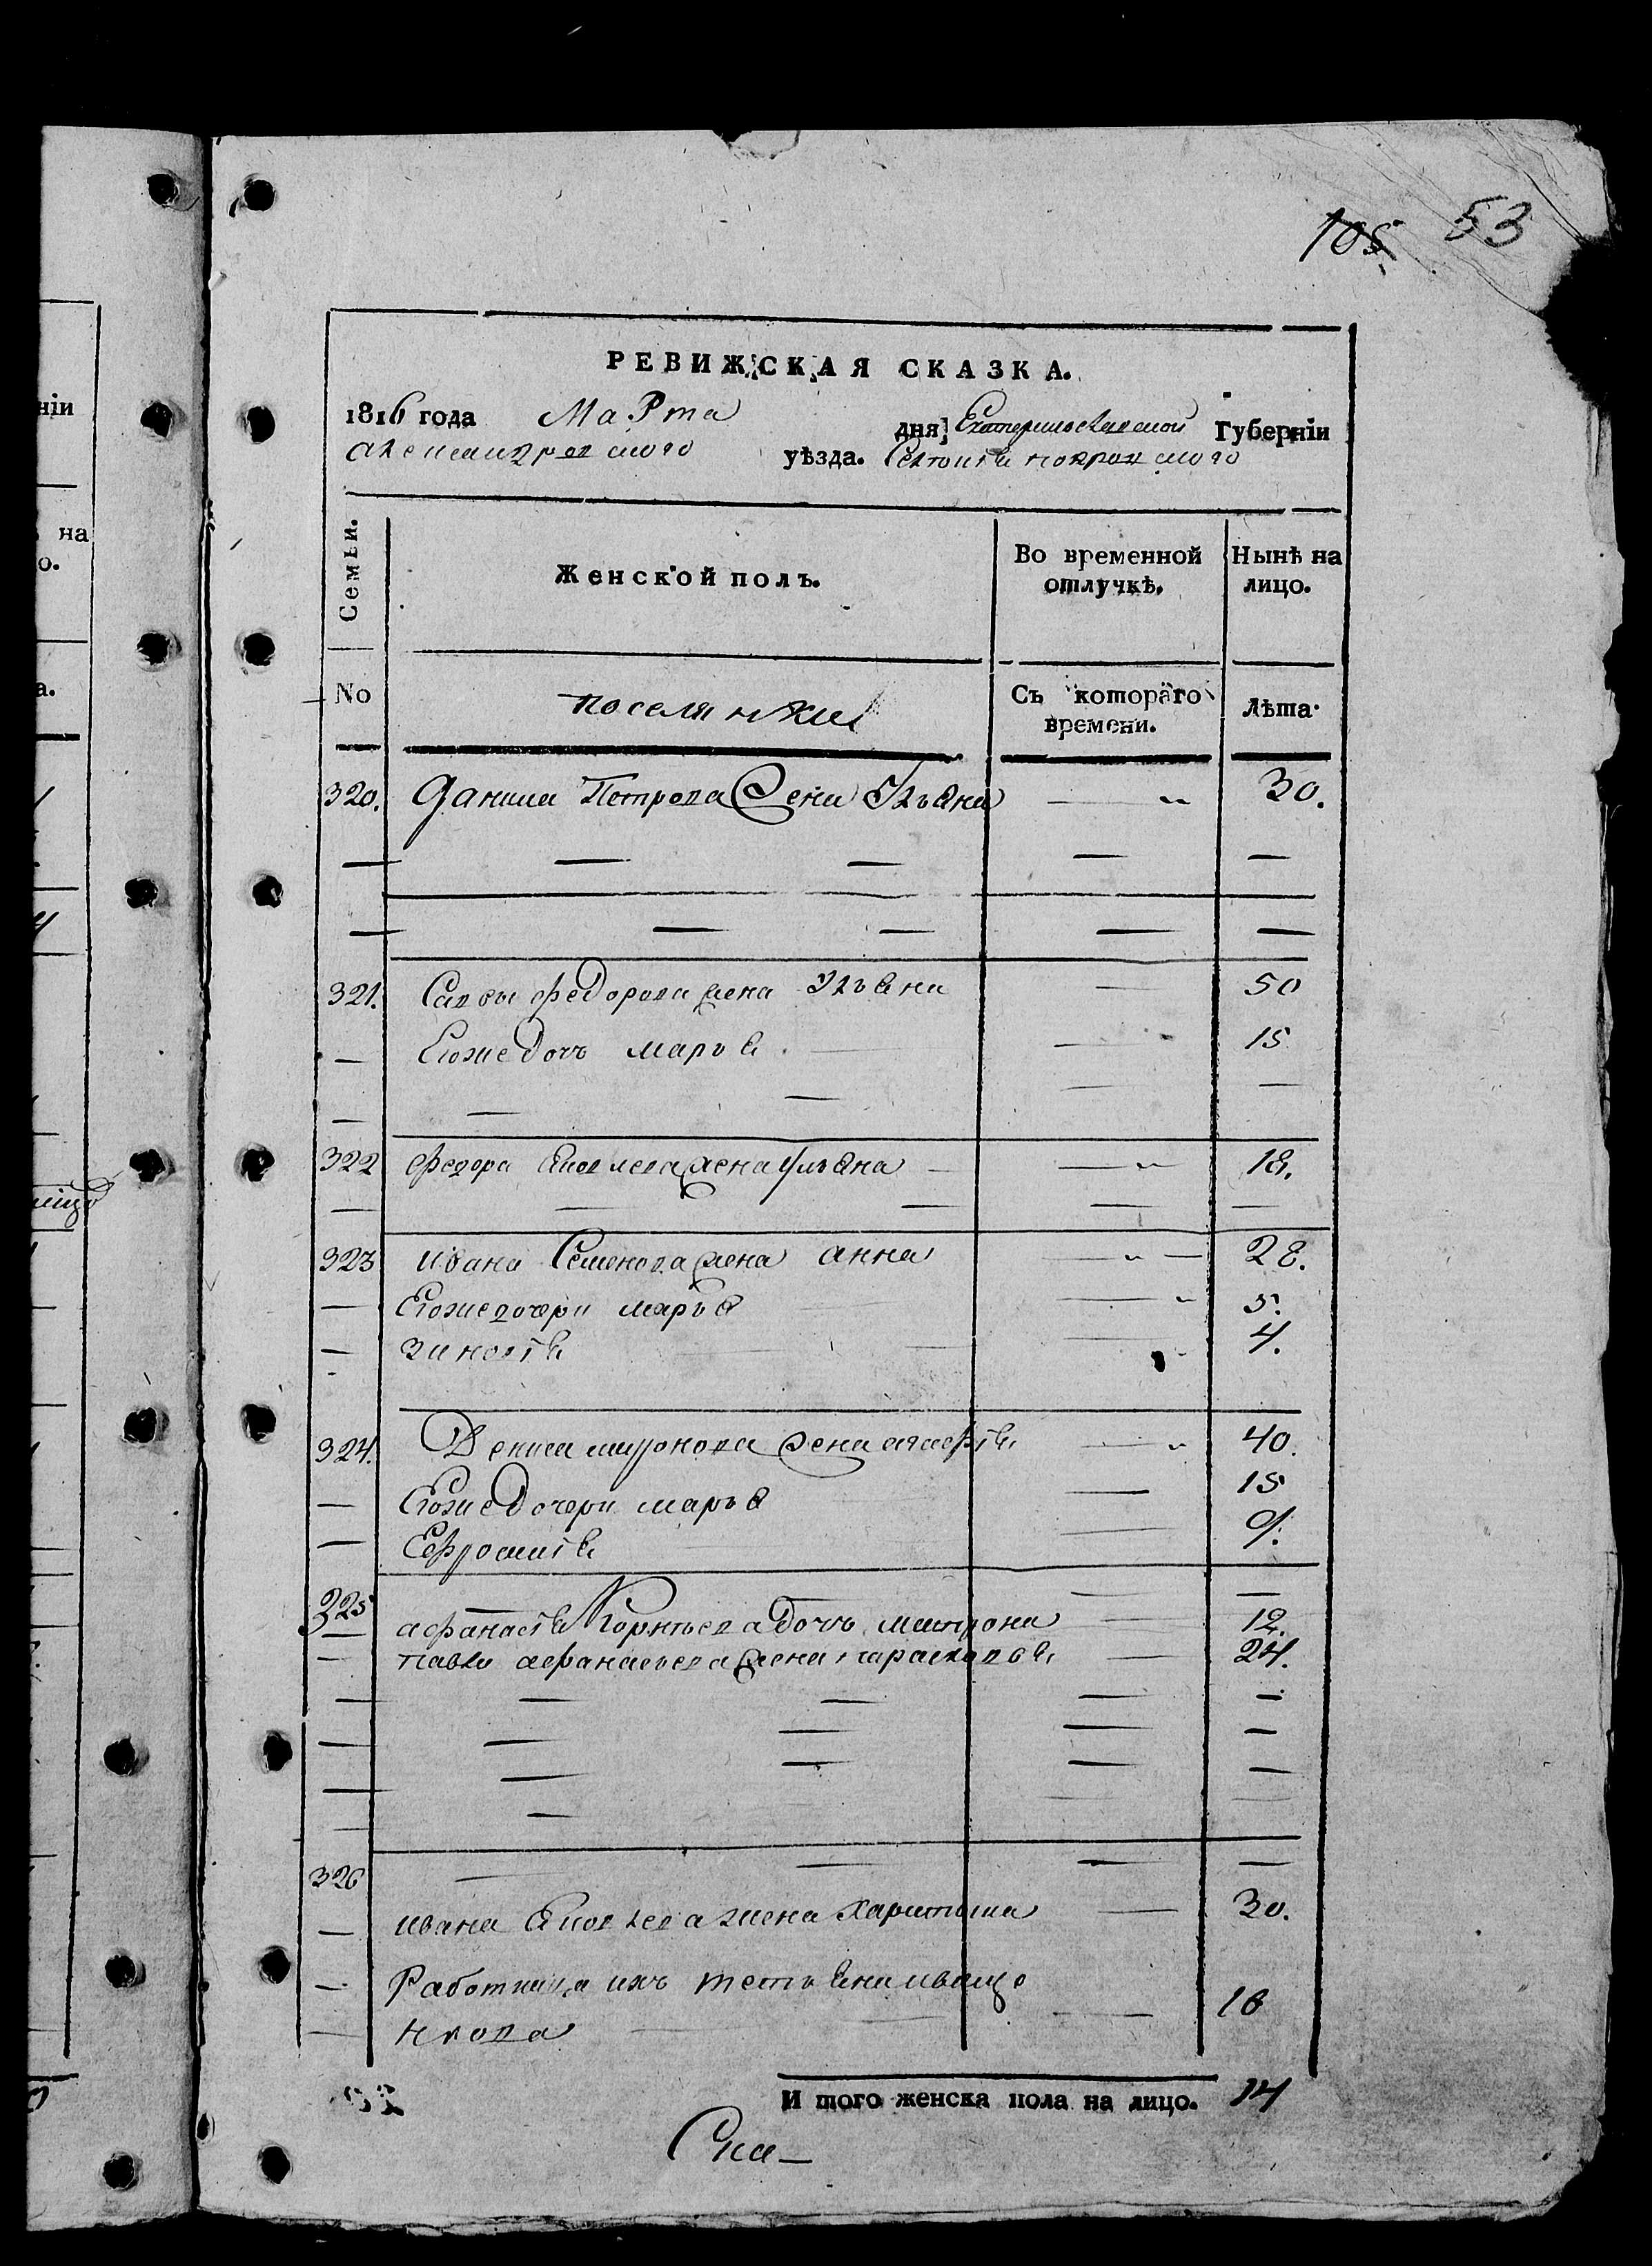 105. 53
РЕВИЖСКАЯ СКАЗКА.
1816 года Марта дня Екатеринославской Губерніи
александровского уѣзда. Селенія покровского
Семьи.
Женской полъ.
Во временной отлучкѣ.
Нынѣ на лицо.
No
поселянки
Съ котораго времени.
Лѣта
320. Данила Петрова жена Ульяна 30.
321. Савы федорова жена Ульяна 50
Егоже дочь марья 15
322 федора яковлева жена ульяна 18.
323 ивана Семенова жена анна 28.
Егоже дочери марья 5.
зиновія 4.
324. Дениса миронова жена агафія 40.
Егоже дочери марья 15
Ефросинія 9.
325
афанасія Корнѣева дочь матрона 12.
павла афанасьева жена парасковья 24.
326
ивана яковлева жена харитына 30.
Работница ихъ татьяна иваще
нкова 16
И того женска пола на лицо. 14
Ска-
ніи
на
о.
а.